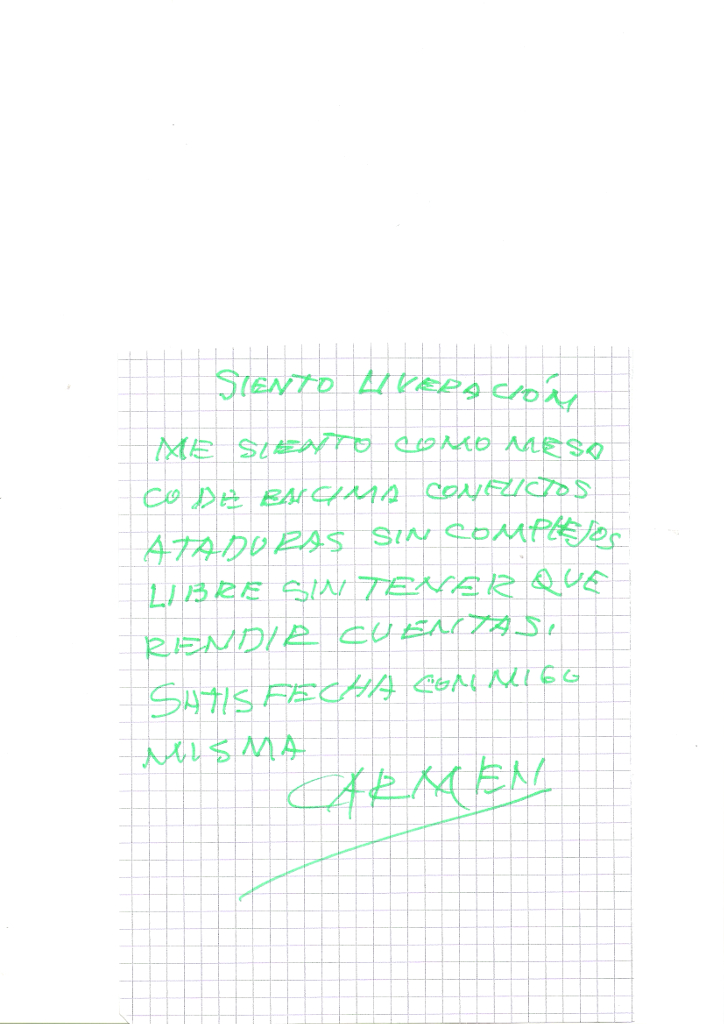 SIENTO LIVERACIÓN
ME SIENTO COMO MESA
CO DE ENCIMA CONFLICTOS
ATADURAS SIN COMPLEJOS
LIBRE SIN TENER QUE
RENDIR CUENTAS.
SATISFECHA CONMIGO
MISMA
CARMEN